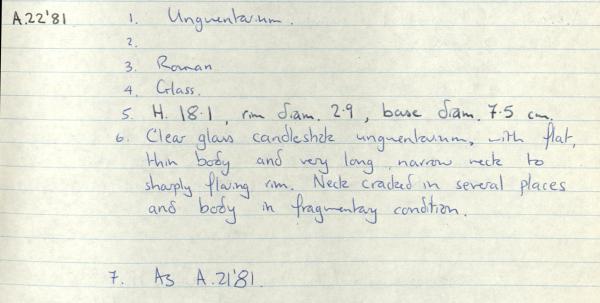 A.22'81
1. Unguentarium.
2.
3. Roman
4. Glass.
5. H. 18.1, rim diam. 2.9, base diam. 7.5 cm.
6. Clear glass candlestick unguentarium, with flat,
thin body and very long, narrow neck to
sharply flaring rim. Neck cracked in several places
and body in fragmentary condition.
7. As A.21'81.